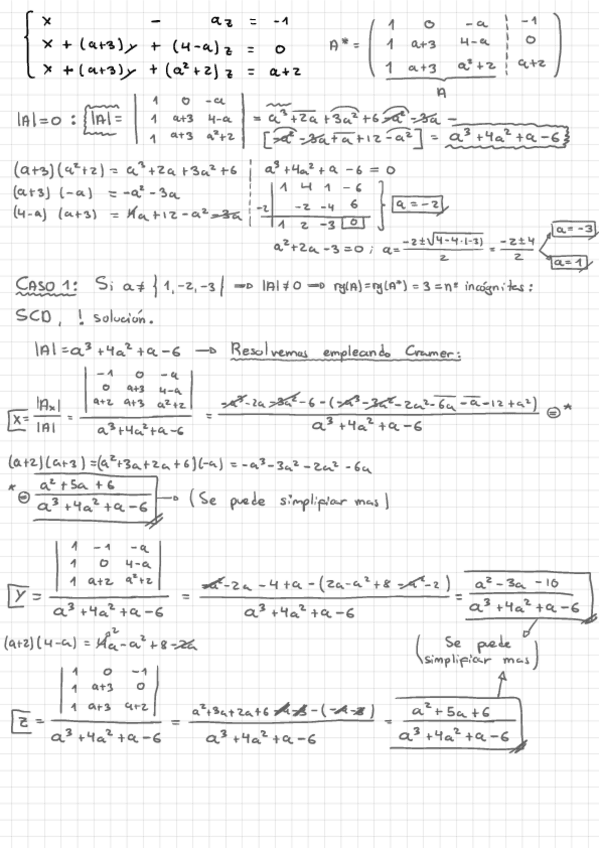 x - az = -1
x + (a+3)y + (4-a)z = 0
x + (a+3)y + (a²+2)z = a+2
A* = ( 1 0 -a | -1
1 a+3 4-a | 0
1 a+3 a²+2 | a+2 )
A
|A|=0 : |A| = | 1 0 -a
1 a+3 4-a
1 a+3 a²+2 | = a³+2a+3a²+6-a²-3a -
[-a²-3a+a+12-a²] = a³+4a²+a-6
(a+3)(a²+2) = a³+2a+3a²+6
(a+3)(-a) = -a²-3a
(4-a)(a+3) = 4a+12-a²-3a
a³+4a²+a-6=0
1 4 1 -6
-2 -2 -4 6
1 2 -3 0
a=-2
a²+2a-3=0; a = (-2±√(4-4·(-3)))/2 = (-2±4)/2
a=-3
a=1
CASO 1: Si a≠{1,-2,-3} ⟹ |A|≠0 ⟹ rg(A)=rg(A*)=3=nº incógnitas:
SCD, ! solución.
|A|=a³+4a²+a-6 → Resolvemos empleando Cramer:
x = |Ax|/|A| = | -1 0 -a
0 a+3 4-a
a+2 a+3 a²+2 | / (a³+4a²+a-6) = (-a³-2a-3a²-6-(-a³-3a²-2a²-6a-a-12+a²)) / (a³+4a²+a-6) =*
(a+2)(a+3)=(a²+3a+2a+6)(-a)=-a³-3a²-2a²-6a
* = (a²+5a+6)/(a³+4a²+a-6) → (Se puede simplipiar mas)
y = | 1 -1 -a
1 0 4-a
1 a+2 a²+2 | / (a³+4a²+a-6) = (-a²-2a-4+a-(2a-a²+8-a²-2)) / (a³+4a²+a-6) = (a²-3a-10)/(a³+4a²+a-6)
(a+2)(4-a) = 4a-a²+8-2a
(Se puede
simplipiar mas)
z = | 1 0 -1
1 a+3 0
1 a+3 a+2 | / (a³+4a²+a-6) = (a²+3a+2a+6-a-3-(-a-3)) / (a³+4a²+a-6) = (a²+5a+6)/(a³+4a²+a-6)